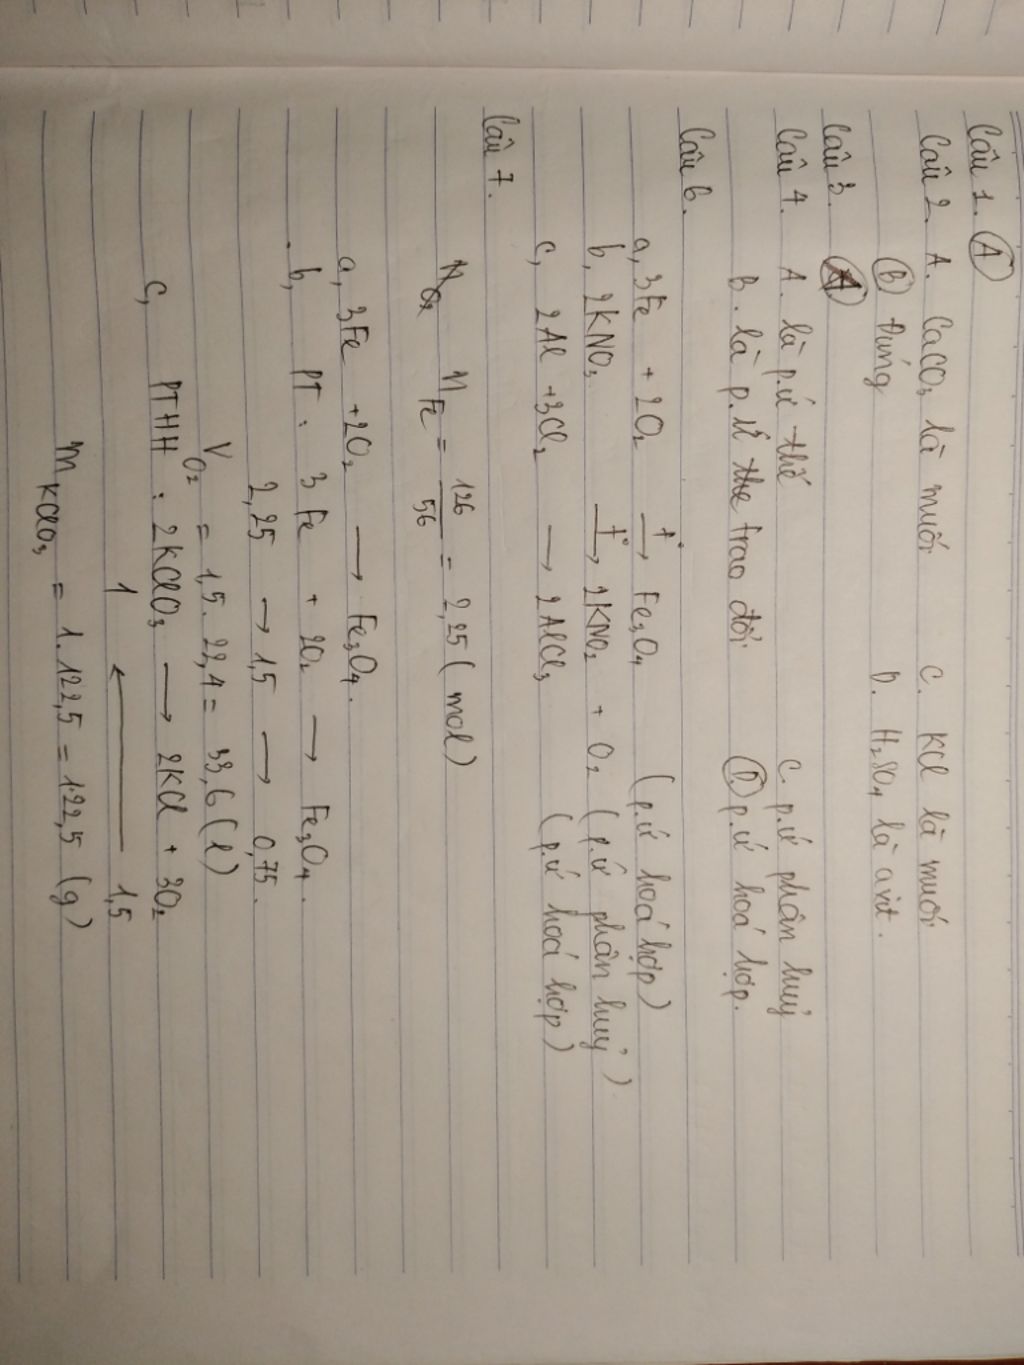 Câu 1. A
Câu 2. A. CaCO₃ là muối C. KCl là muối
B Đúng D. H₂SO₄ là axit.
Câu 3. A
Câu 4. A. là p.ứ thế C. p.ứ phân huỷ
B. là p.ứ the trao đổi. D. p.ứ hoá hợp.
Câu 6.
a, 3Fe + 2O₂ →(t°) Fe₃O₄ (p.ứ hoá hợp)
b, 2KNO₃ →(t°) 2KNO₂ + O₂ (p.ứ phân huỷ)
c, 2Al + 3Cl₂ → 2AlCl₃ (p.ứ hoá hợp)
Câu 7.
n Fe = 126/56 = 2,25 (mol)
a, 3Fe + 2O₂ → Fe₃O₄.
b, PT: 3Fe + 2O₂ → Fe₃O₄.
2,25 → 1,5 → 0,75.
V O₂ = 1,5. 22,4 = 33,6 (l)
c, PTHH: 2KClO₃ → 2KCl + 3O₂
1 ← 1,5
m KClO₃ = 1. 122,5 = 122,5 (g)